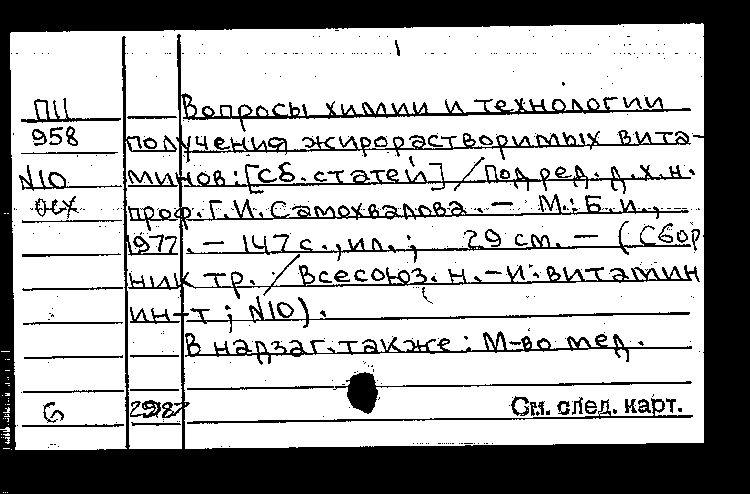 1
П11 Вопросы химии и технологии
958 получения жирорастворимых вита-
N10 минов: [Сб. статей] / Под ред. д.х.н.
осх проф. Г.И. Самохвалова. — М.: Б.и.,
1977. — 147 с., ил.; 29 см. — (Сбор
ник тр. / Всесоюз. н.-и. витамин
ин-т; N10).
В надзаг. также: М-во мед.
6 См. след. карт.